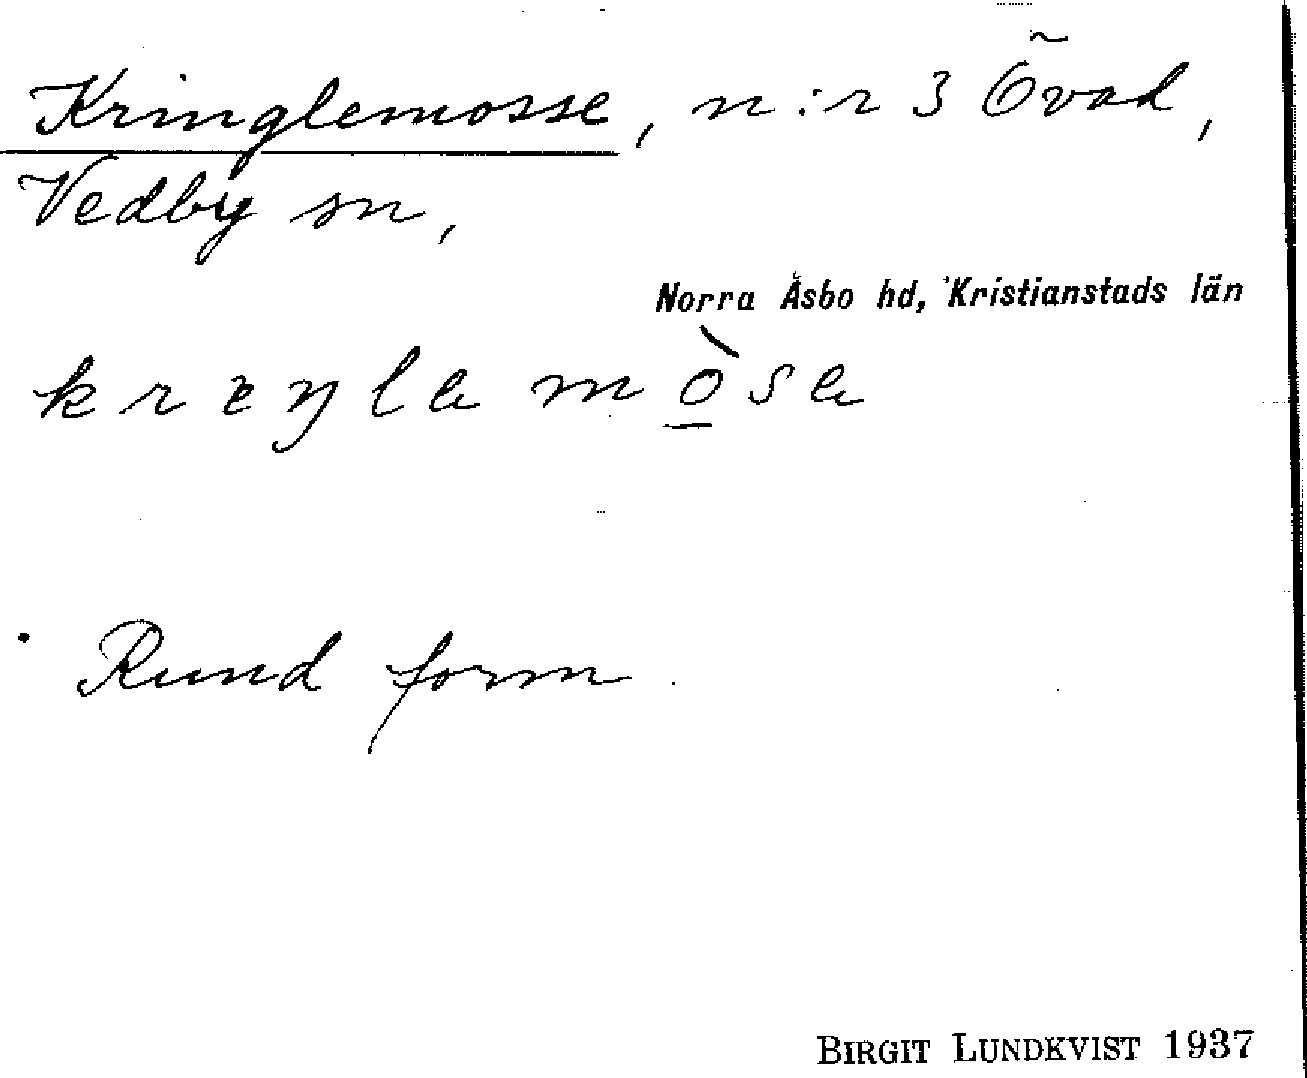 Kringlemosse, n:r 3 Övad,
Vedby sn,
Norra Åsbo hd, Kristianstads län
Rund form
BIRGIT LUNDKVIST 1937